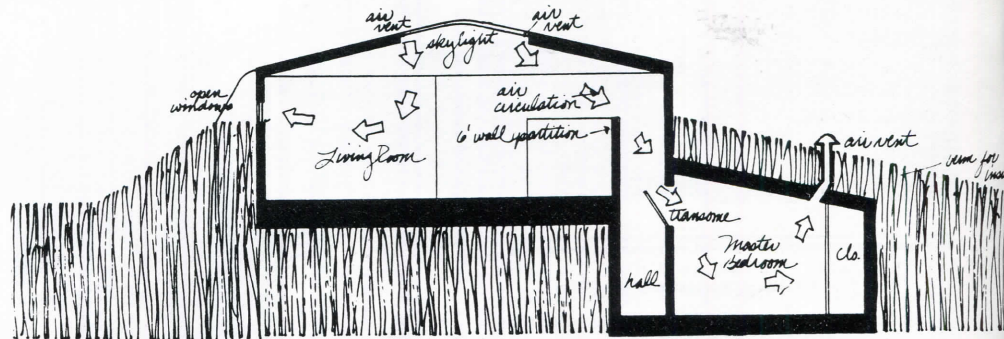 air
vent
air
vent
skylight
open
windows
air
circulation
6' wall partition
Living Room
air vent
for
transome
Master
Bedroom
clo.
hall